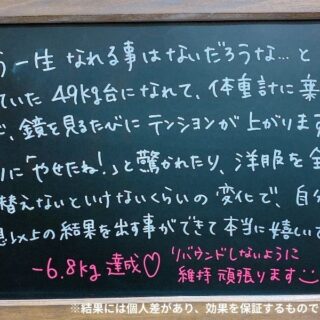 う一生 なれる事はないだろうな…と
ていた 49kg台になれて、体重計に乗
で、鏡を見るたびにテンションが上がります
りに「やせたね!」と驚かれたり、洋服を全
替えないといけないくらいの 変化で、自分
想以上の結果を出す事ができて本当に嬉しいで
-6.8kg 達成♡
リバウンドしないように
維持 頑張ります
※結果には個人差があり、効果を保証するもので